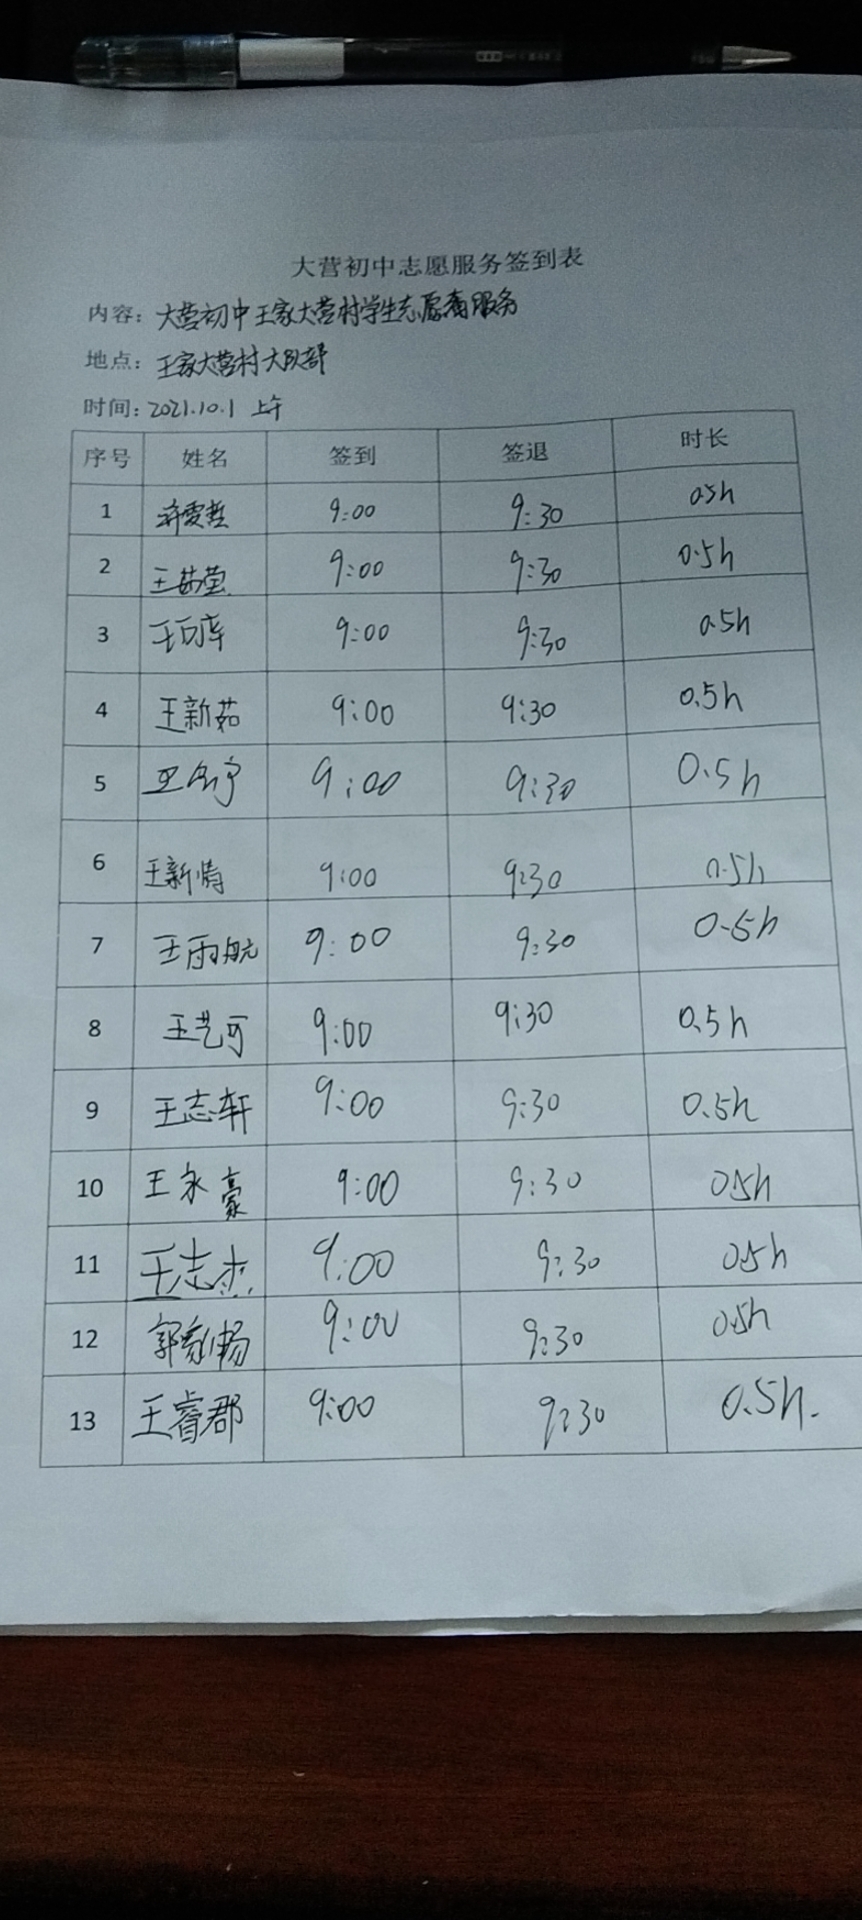 大营初中志愿服务签到表
内容：大营初中王家大营村学生志愿者服务
地点：王家大营村大队部
时间：2021.10.1 上午
序号 姓名 签到 签退 时长
1 9:00 9:30 0.5h
2 王茹莹 9:00 9:30 0.5h
3 9:00 9:30 0.5h
4 王新茹 9:00 9:30 0.5h
5 9:00 9:30 0.5h
6 王新情 9:00 9:30 0.5h
7 王雨航 9:00 9:30 0.5h
8 王艺可 9:00 9:30 0.5h
9 王志轩 9:00 9:30 0.5h
10 王永豪 9:00 9:30 0.5h
11 王志杰 9:00 9:30 0.5h
12 郭家畅 9:00 9:30 0.5h
13 王睿郡 9:00 9:30 0.5h.